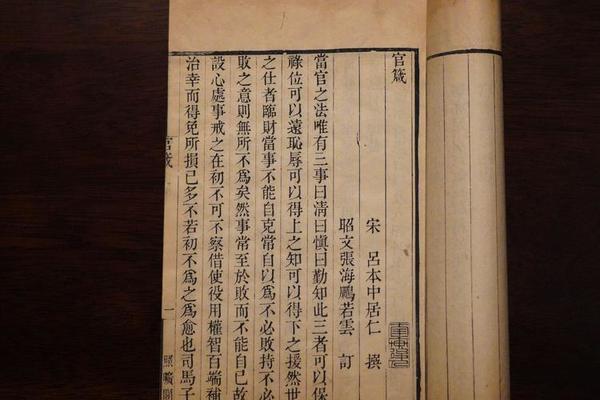 官箴
宋　呂本中居仁　撰
昭文張海鵬若雲　訂
當官之法唯有三事曰清曰慎曰勤知此三者可以保
祿位可以遠恥辱可以得上之知可以得下之援然世
之仕者臨財當事不能自克常自以爲不必敗持不
敗之意則無所不爲矣然事常至於敗而不能自已故
設心處事戒之在初不可不察借使役用權智百端補
治幸而得免所損已多不若初不爲之爲愈也司馬子
官箴　一　照曠閣